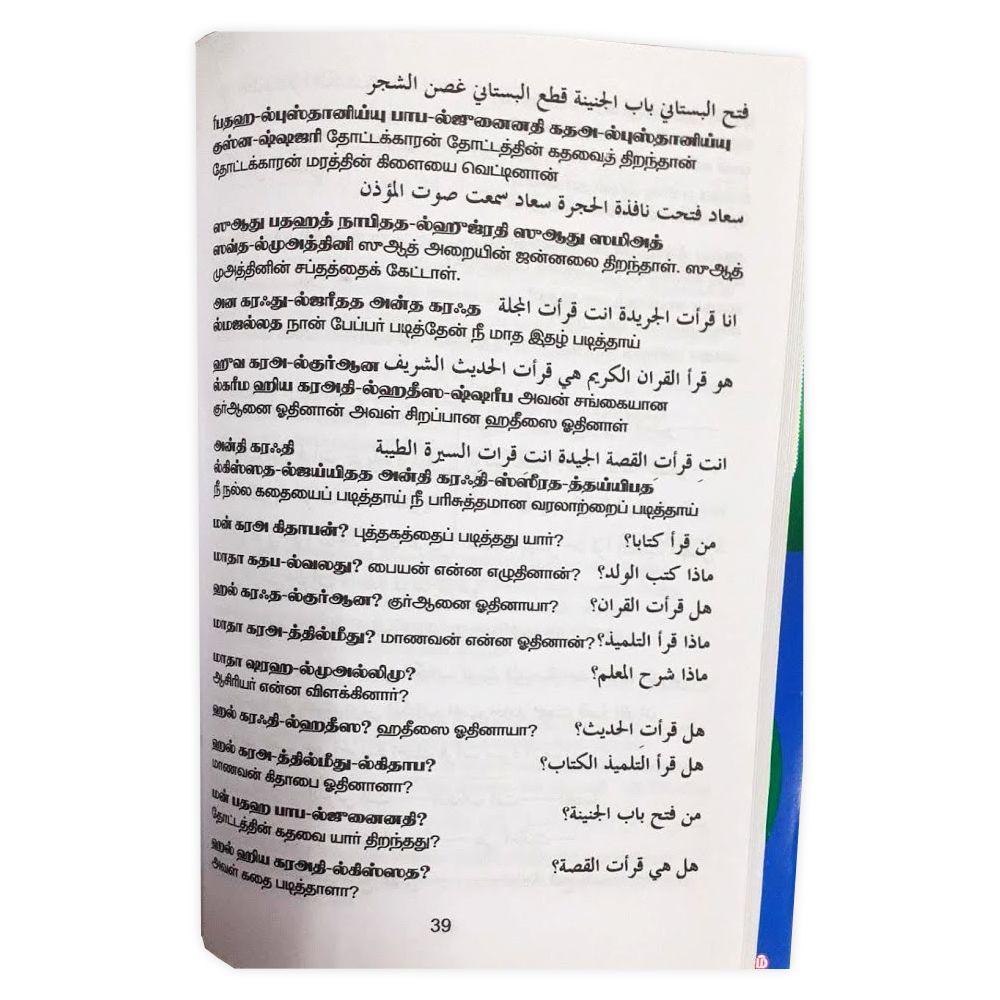 فتح البستاني باب الجنينة قطع البستاني غصن الشجر
fபதஹ-ல்புஸ்தானிய்யு பாப-ல்ஜுனைனதி கதஅ-ல்புஸ்தானிய்யு
குஸ்ன-ஷ்ஷஜரி தோட்டக்காரன் தோட்டத்தின் கதவைத் திறந்தான்
தோட்டக்காரன் மரத்தின் கிளையை வெட்டினான்
سعاد فتحت نافذة الحجرة سعاد سمعت صوت المؤذن
ஸுஆது பதஹத் நாபிதத-ல்ஹுஜ்ரதி ஸுஆது ஸமிஅத்
ஸவ்த-ல்முஅத்தினி ஸுஆத் அறையின் ஜன்னலை திறந்தாள். ஸுஆத்
முஅத்தினின் சப்தத்தைக் கேட்டாள்.
அன கரஃது-ல்ஜரீதத அன்த கரஃத انا قرأت الجريدة انت قرأت المجلة
ல்மஜல்லத நான் பேப்பர் படித்தேன் நீ மாத இதழ் படித்தாய்
ஹுவ கரஅ-ல்குர்ஆன هو قرأ القران الكريم هي قرأت الحديث الشريف
ல்கரீம ஹிய கரஅதி-ல்ஹதீஸ-ஷ்ஷரீப அவன் சங்கையான
குர்ஆனை ஓதினான் அவள் சிறப்பான ஹதீஸை ஓதினாள்
அன்தி கரஃதி انتِ قرأتِ القصة الجيدة انت قرات السيرة الطيبة
ல்கிஸ்ஸத-ல்ஜய்யிதத அன்தி கரஃதி-ஸ்ஸீரத-த்தய்யிபத
நீ நல்ல கதையைப் படித்தாய் நீ பரிசுத்தமான வரலாற்றைப் படித்தாய்
மன் கரஅ கிதாபன்? புத்தகத்தைப் படித்தது யார்? من قرأ كتابا؟
மாதா கதப-ல்வலது? பையன் என்ன எழுதினான்? ماذا كتب الولد؟
ஹல் கரஃத-ல்குர்ஆன? குர்ஆனை ஓதினாயா? هل قرأت القران؟
மாதா கரஅ-த்தில்மீது? மாணவன் என்ன ஓதினான்? ماذا قرأ التلميذ؟
மாதா ஷரஹ-ல்முஅல்லிமு? ماذا شرح المعلم؟
ஆசிரியர் என்ன விளக்கினார்?
ஹல் கரஃதி-ல்ஹதீஸ? ஹதீஸை ஓதினாயா? هل قرأتِ الحديث؟
ஹல் கரஅ-த்தில்மீது-ல்கிதாப? هل قرأ التلميذ الكتاب؟
மாணவன் கிதாபை ஓதினானா?
மன் பதஹ பாப-ல்ஜுனைனதி? من فتح باب الجنينة؟
தோட்டத்தின் கதவை யார் திறந்தது?
ஹல் ஹிய கரஅதி-ல்கிஸ்ஸத? هل هي قرأت القصة؟
அவள் கதை படித்தாளா?
39